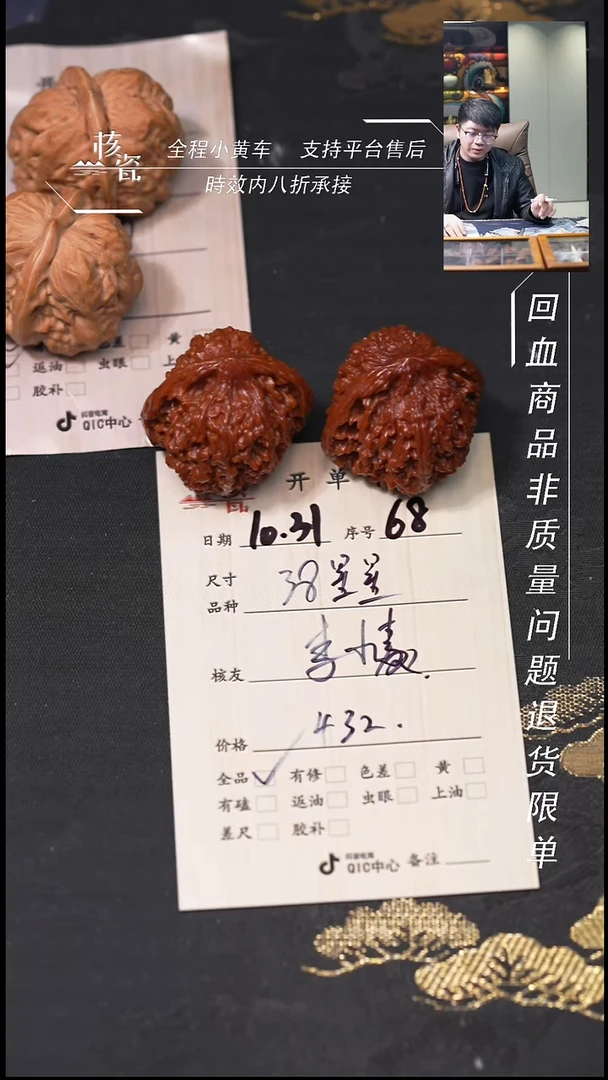 核瓷
全程小黄车 支持平台售后
時效内八折承接
回血商品非质量问题退货限单
黄
返油 虫眼 上
胶补
抖音电商
QIC中心
开单
日期 10.31 序号 68
尺寸
品种 38
核友 李小
价格 432.
全品 ✓ 有修 色差 黄
有磕 返油 虫眼 上油
差尺 胶补
抖音电商
QIC中心 备注